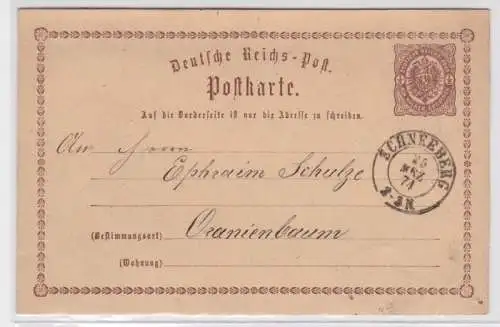 Deutsche Reichs-Post.
Postkarte.
Auf die Vorderseite ist nur die Adresse zu schreiben.
SCHNEEBERG
25
MRZ
74
An Herrn
Ephraim Schulze
(Bestimmungsort) Oranienbaum
(Wohnung)